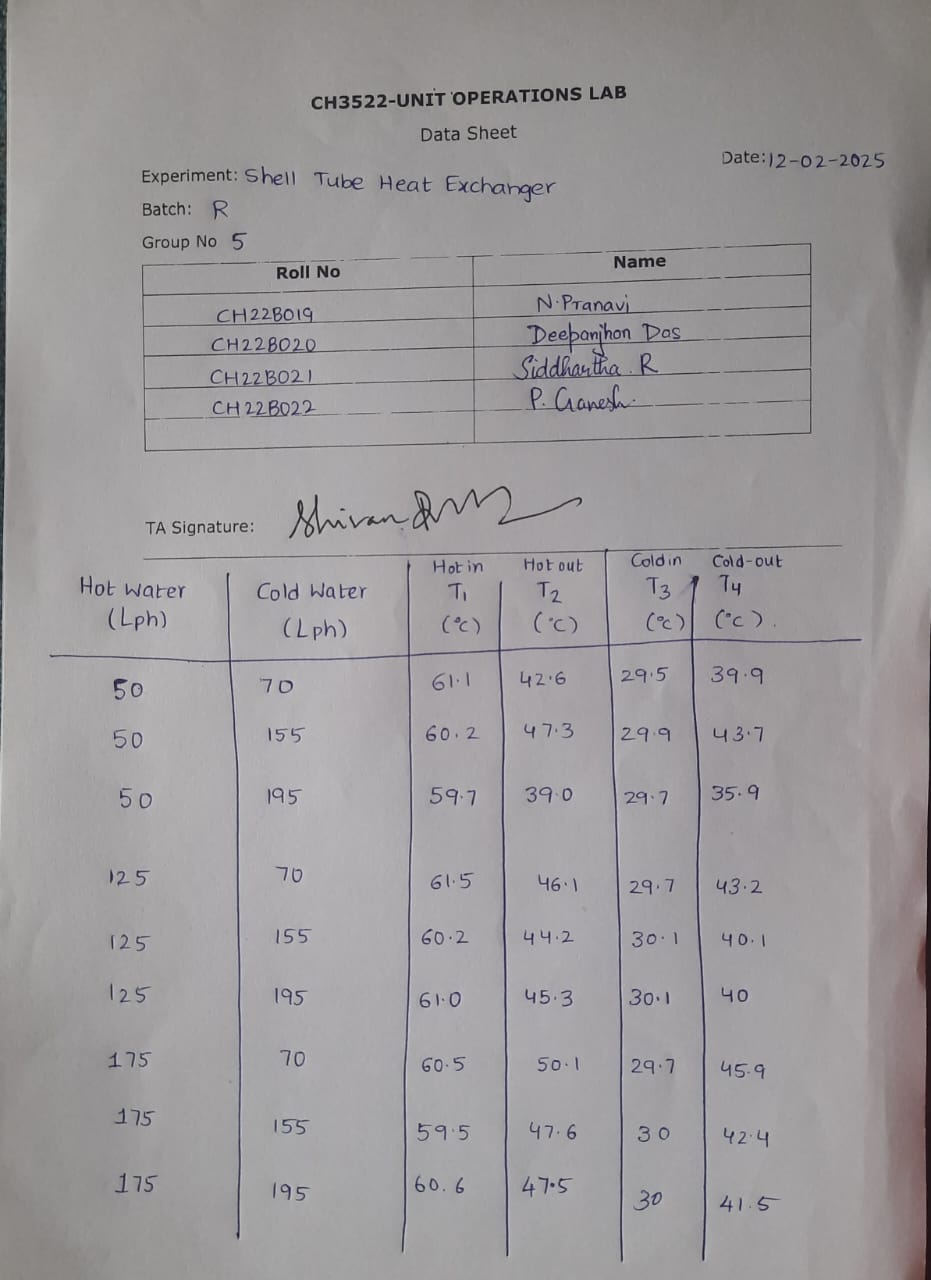 CH3522-UNIT OPERATIONS LAB
Data Sheet
Date:12-02-2025
Experiment: Shell Tube Heat Exchanger
Batch: R
Group No 5
Roll No Name
CH22B019 N.Pranavi
CH22B020 Deepanjhon Das
CH22B021 Siddhartha.R
CH22B022 P. Ganesh.
TA Signature:
Hot in Hot out Cold in Cold-out
Hot Water Cold Water T1 T2 T3 T4
(Lph) (Lph) (°c) (°C) (°c) (°c).
50 70 61.1 42.6 29.5 39.9
50 155 60.2 47.3 29.9 43.7
50 195 59.7 39.0 29.7 35.9
125 70 61.5 46.1 29.7 43.2
125 155 60.2 44.2 30.1 40.1
125 195 61.0 45.3 30.1 40
175 70 60.5 50.1 29.7 45.9
175 155 59.5 47.6 30 42.4
175 195 60.6 47.5 30 41.5